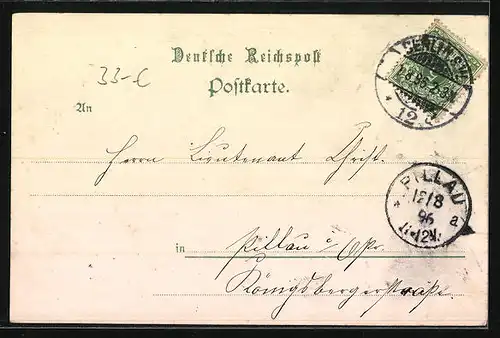 Deutsche Reichspost
Postkarte.
33-
An
12
Herrn Lieutenant Christ.
PILLAU
12/8
96
11-12V.
a
in Pillau i/Opr.
Königsbergerstraße.